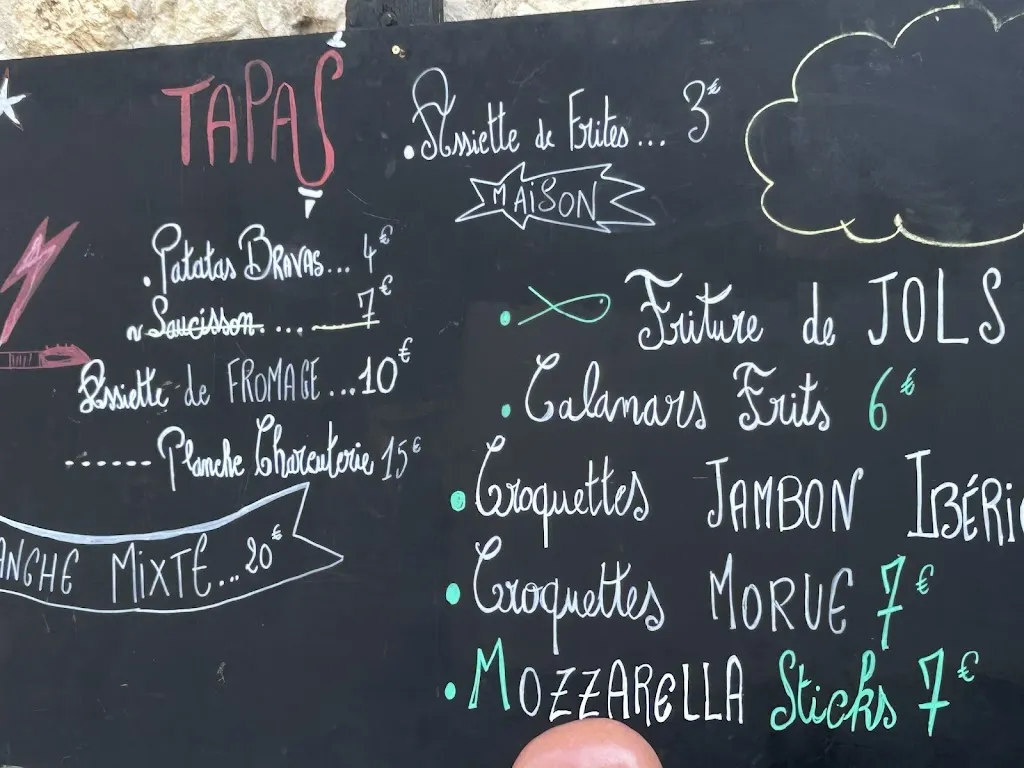 TAPAS
. Patatas BRAVAS... 4€
~ Saucisson. ... 7€
Assiette de FROMAGE...10€
....... Planche Charcuterie 15€
ANCHE MIXTE...20€
. Assiette de Frites... 3€
MAISON
• Friture de JOLS
• Calamars Frits 6€
• Croquettes JAMBON IBÉRIC
• Croquettes MORUE 7€
• MOZZARELLA Sticks 7€